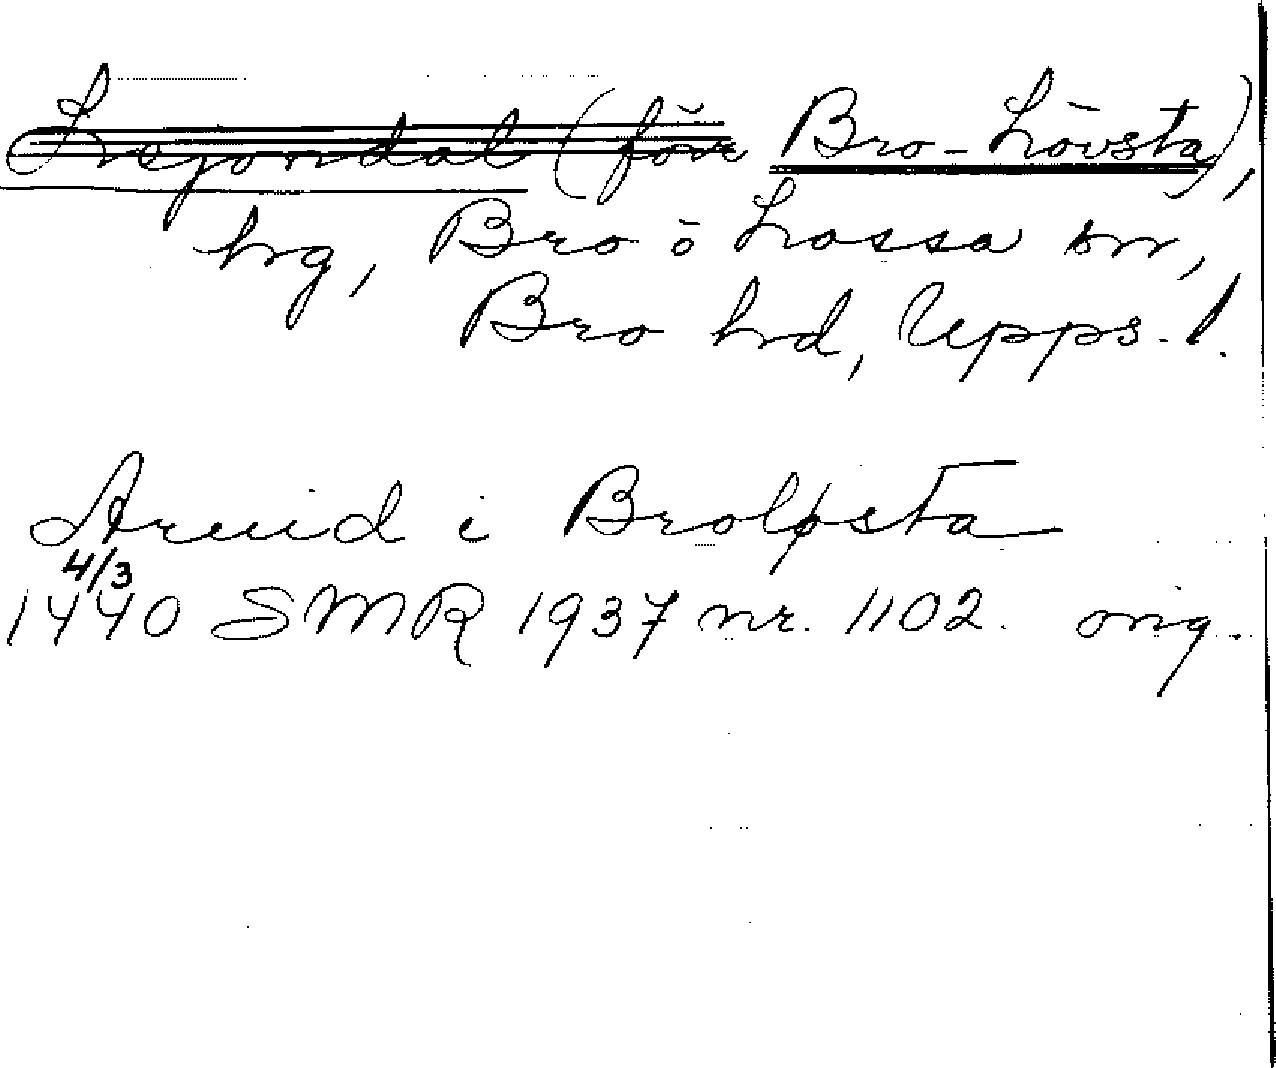 Lejondal (förr Bro-Lövsta),
hg, Bro o Lossa snr,
Bro hd, Upps. l.
Arvid i Broløsta
4/3
1440 SMR 1937 nr. 1102. orig.